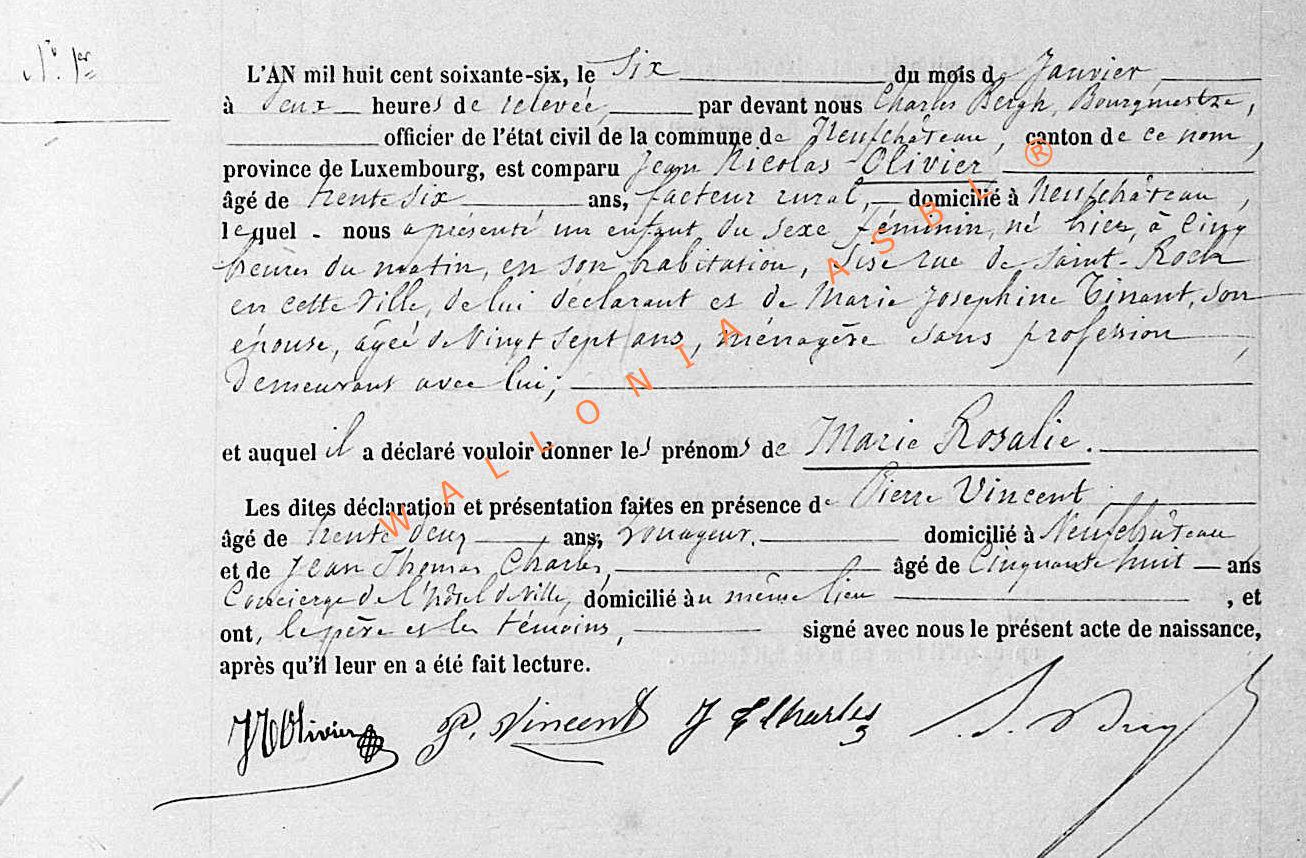 N° 1er
L'AN mil huit cent soixante-six, le six du mois de Janvier,
à deux heures de relevée, par devant nous Charles Bergh, Bourgmestre,
officier de l'état civil de la commune de Neufchâteau, canton de ce nom,
province de Luxembourg, est comparu Jean Nicolas Olivier
âgé de trente six ans, facteur rural, domicilié à Neufchâteau,
lequel nous a présenté un enfant du sexe féminin, né hier, à cinq
heures du matin, en son habitation, sise rue de Saint-Roch
en cette ville, de lui déclarant et de Marie Josephine Tinant, son
épouse, âgée de vingt sept ans, ménagère sans profession,
demeurant avec lui;
et auquel il a déclaré vouloir donner les prénoms de Marie Rosalie.
Les dites déclaration et présentation faites en présence de Pierre Vincent,
âgé de trente deux ans, domicilié à Neufchâteau
et de Jean Thomas Charles, âgé de Cinquante huit ans
Concierge de l'hôtel de Ville, domicilié au même lieu, et
ont, le père et les témoins, signé avec nous le présent acte de naissance,
après qu'il leur en a été fait lecture.
JN Olivier P. Vincent J T Charles
WALLONIA ASBL ®